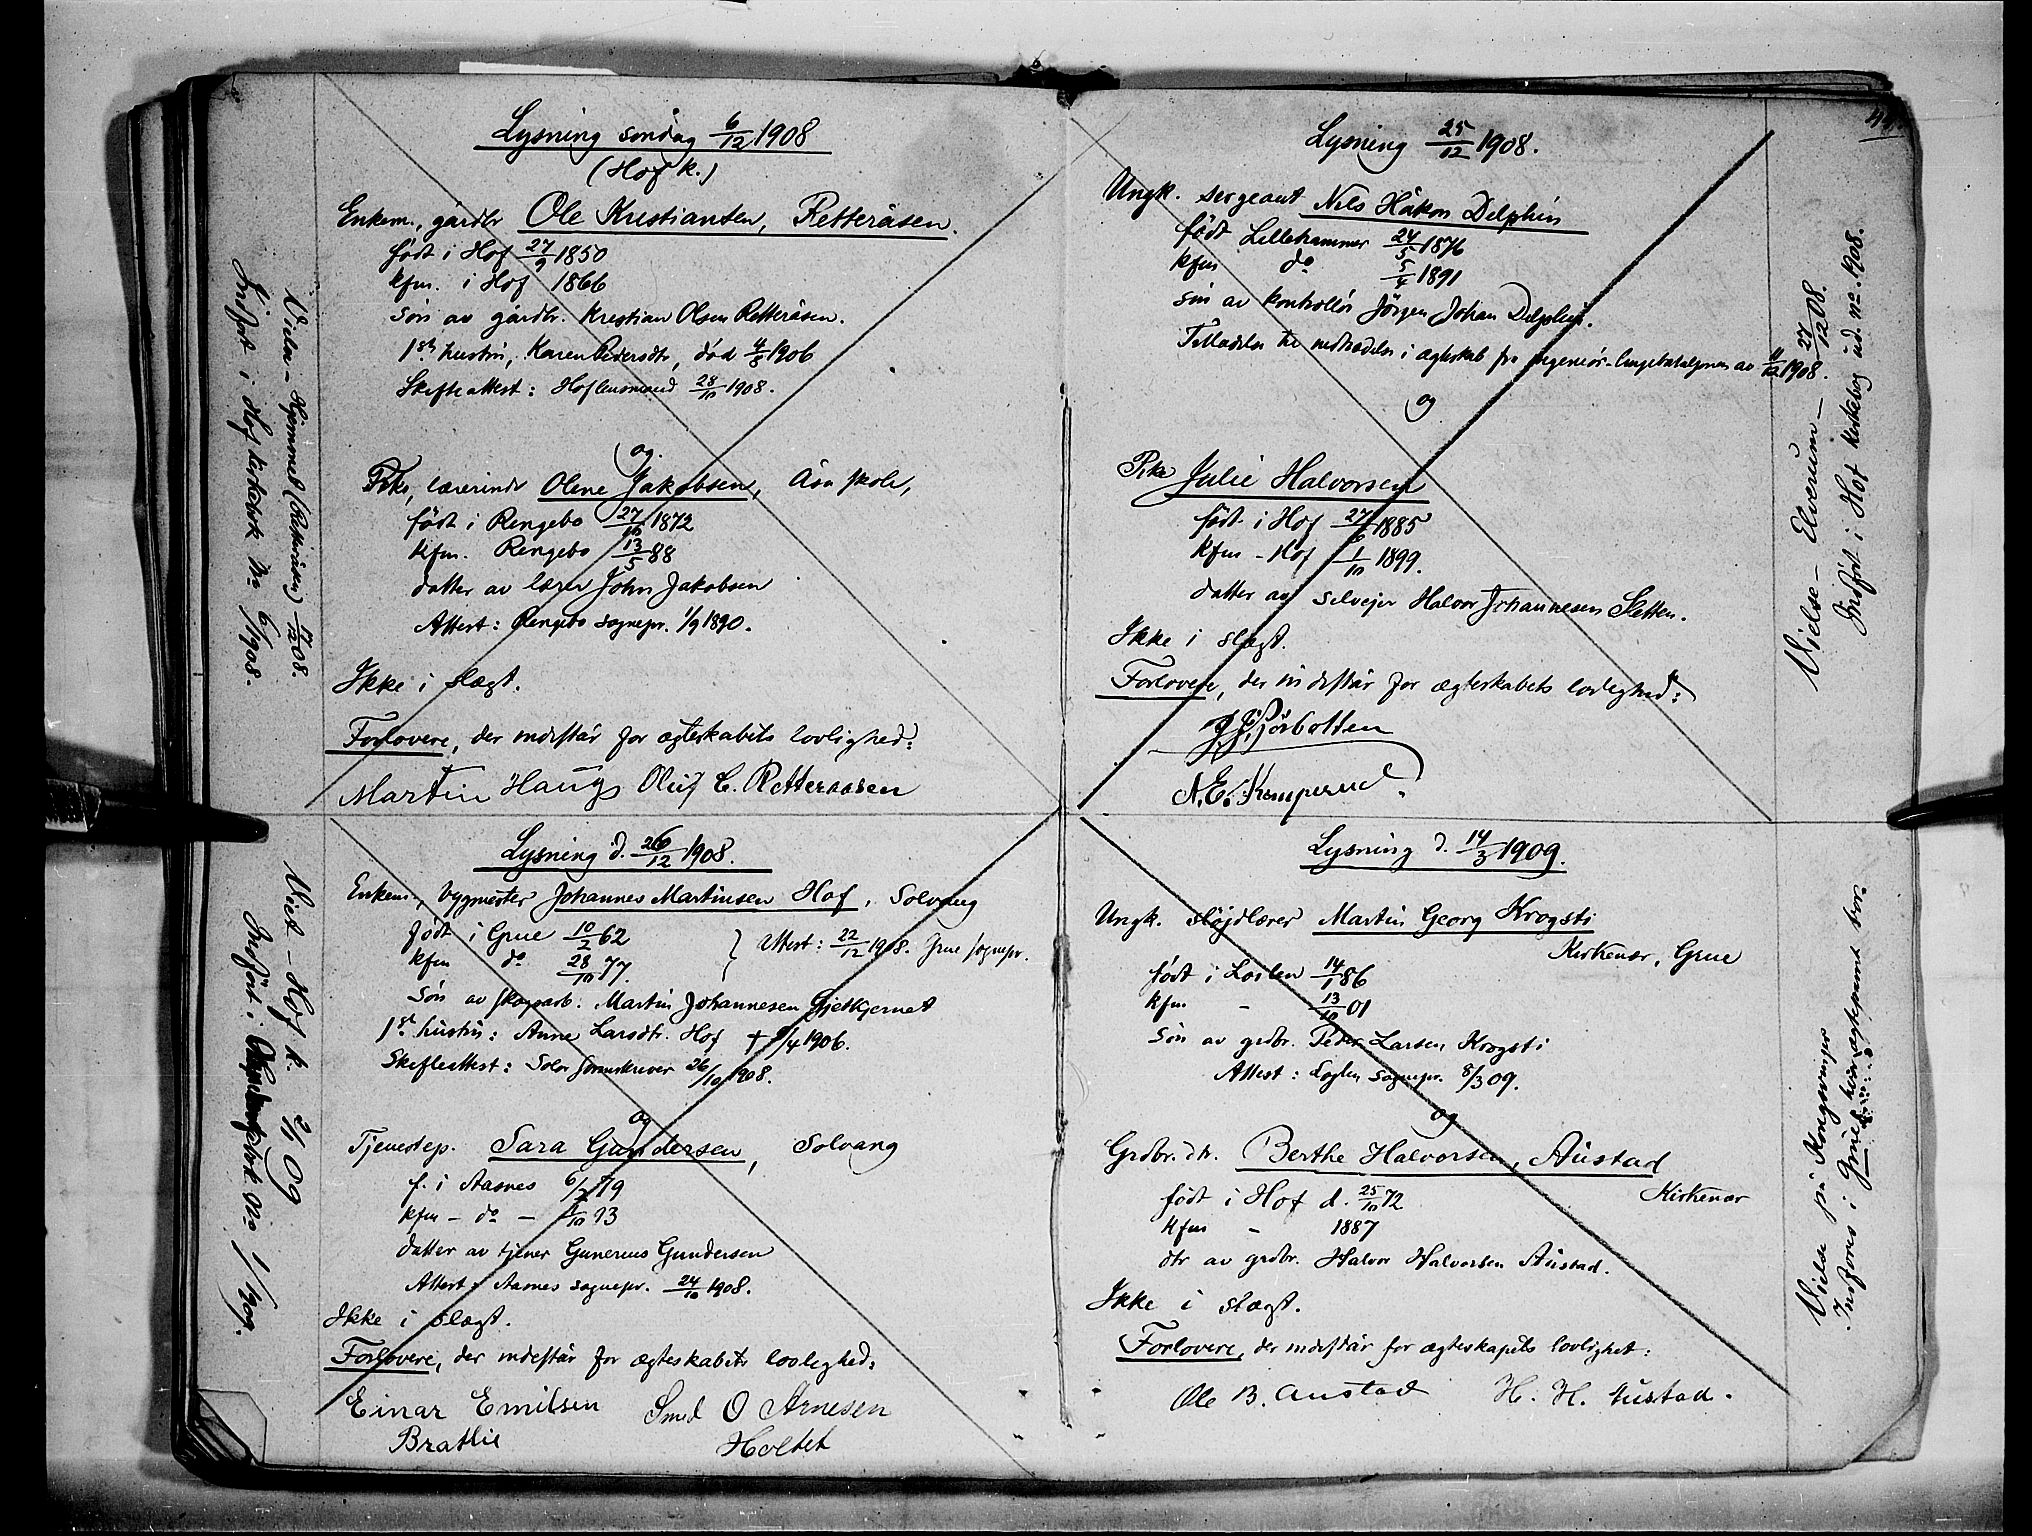 Lysning søndag 6/12 1908
(Hof k.)
Enkem., gårdbr Ole Kristiansen, Retteråsen.
født i Hof 27/9 1850
kfm. i Hof 1866
Søn av gårdbr. Kristian Olsen Retteråsen.
1ste hustru, Karen Pedersdtr, død 4/3 1906
Skifteattest: Hof lensmand 28/10 1908.
og
Pike, lærerinde Olene Jakobsen, Åsa skole,
født i Ringebo 27/10 1872
kfm. Ringebo 13/5 88
datter av lærer John Jakobsen
Attest: Ringebo sognepr. 1/9 1890.
Ikke i slægt.
Forlovere, der indestår for ægteskabets lovlighed:
Martin Haugs Oluf C. Retteraasen
Vielse – Hjemmet (Retteråsen) /12 08.
Indført i Hof kirkebok No 6/1908.
Lysning d. 26/12 1908.
Enkem., bygmester Johannes Martinsen Hof, Solvang
født i Grue 10/2 62
kfm do 28/10 77.
} Attest: 22/12 1908. Grue sognepr.
Søn av skogarb. Martin Johannesen Gjetkjernet
1ste hustru: Anne Larsdtr. Hof † /4 1906.
Skifteattest: Solør sorenskriver 26/10 1908.
og
Tjenestep. Sara Gundersen, Solvang
f. i Aasnes 6/ 79
kfm – do – /10 93
datter av tjener Gunerius Gundersen
Attest: Aasnes sognepr. 24/10 1908.
Ikke i slægt.
Forlovere, der indestår for ægteskabets lovlighed:
Einar Emilsen Smed O Arnesen
Brathe Holtet
Viet – Hof k. 2/1 09
Indført i No 1/1909.
Lysning 25/12 1908.
Ungk. sergeant Nils Håkon Delphin
født Lillehammer 24/5 1876
kfm do 5/4 1891
søn av kontrollør Jörgen Johan Delphin.
Tilladelse til indtrædelse i ægteskab fra ingeniør- av 11/12 1908.
og
Pike Julie Halvorsen
født i Hof 27/6 1885
kfm – Hof 1/10 1899.
datter av selveier Halvor Johannesen Sletten.
Ikke i slægt.
Forlovere, der indestår for ægteskabets lovlighed:
N. E. Kemperud.
Vielse – Elverum – 27/12 08.
Indført i Hof kirkebog ud. no. 1908.
Lysning d. 14/3 1909.
Ungk. sløjdlærer Martin Georg Krogsti
Kirkenær, Grue
født i Løiten 14/1 86
kfm – 13/10 01
Søn av grdbr. Peder Larsen Krogsti
Attest: Løiten sognepr. 8/3 09.
og
Grdbr. dtr. Berthe Halvorsen, Austad
Kirkenær
født i Hof d. 25/10 72
kfm – 1887
dtr av grdbr. Halvor Halvorsen Austad.
Ikke i slægt.
Forlovere, der indestår for ægteskapets lovlighet:
Ole B. Austad H. H. Austad.
Vielse på Kongsvinger
Indføres i Grue hvor ægteparret bor.